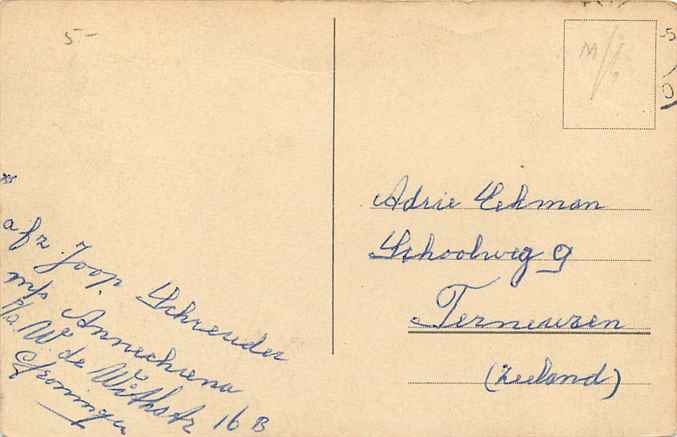 5-
afz. Joop Schreuder
m/s Annechiena
p/a W. de Withstr 16 B
Groningen
M
Adrie Eekman
Schoolweg 9
Terneuzen
(Zeeland)